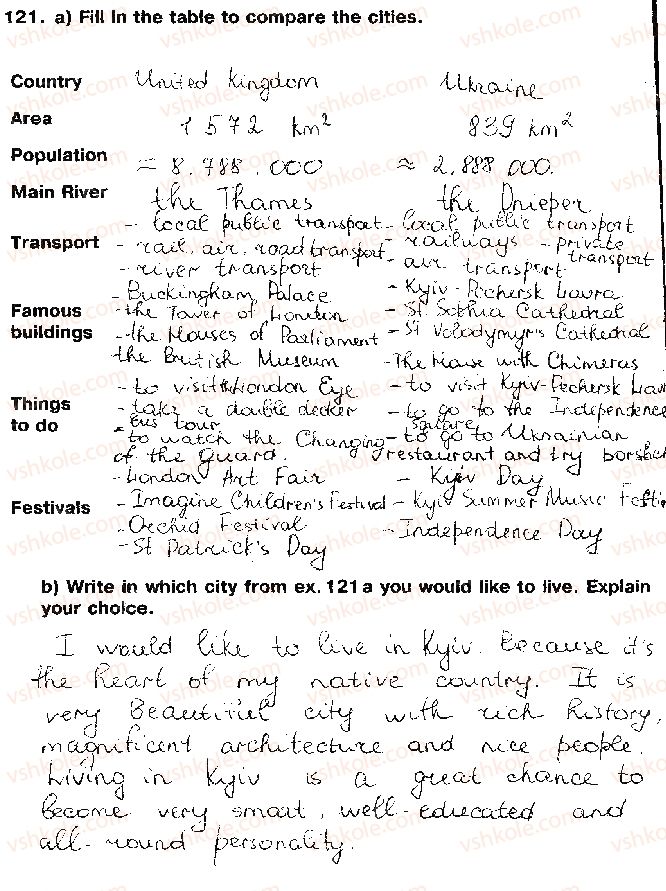 121. a) Fill in the table to compare the cities.
Country United Kingdom Ukraine
Area 1 572 km² 839 km²
Population ≈ 8.788.000 ≈ 2.888 000.
Main River the Thames the Dnieper
Transport
- local public transport
- rail, air, road transport
- river transport
- local public transport
- railways - private transport
- air transport
Famous buildings
- Buckingham Palace
- the Tower of London
- the Houses of Parliament
the British Museum
- Kyiv-Pechersk Lavra
- St Sophia Cathedral
- St Volodymyr's Cathedral
- The House with Chimeras
Things to do
- to visit the London Eye
- take a double decker
- bus tour
- to watch the Changing
of the Guard.
- to visit Kyiv-Pechersk Lav
- to go to the Independence
square
- to go to Ukrainian
restaurant and try borshch
Festivals
- London Art Fair
- Imagine Children's Festival
- Orchid Festival
- St Patrick's Day
- Kyiv Day
- Kyiv Summer Music Festi
- Independence Day
b) Write in which city from ex. 121 a you would like to live. Explain
your choice.
I would like to live in Kyiv. Because it's
the heart of my native country. It is
very beautiful city with rich history,
magnificent architecture and nice people.
Living in Kyiv is a great chance to
become very smart, well-educated and
all-round personality.
vshkole.com